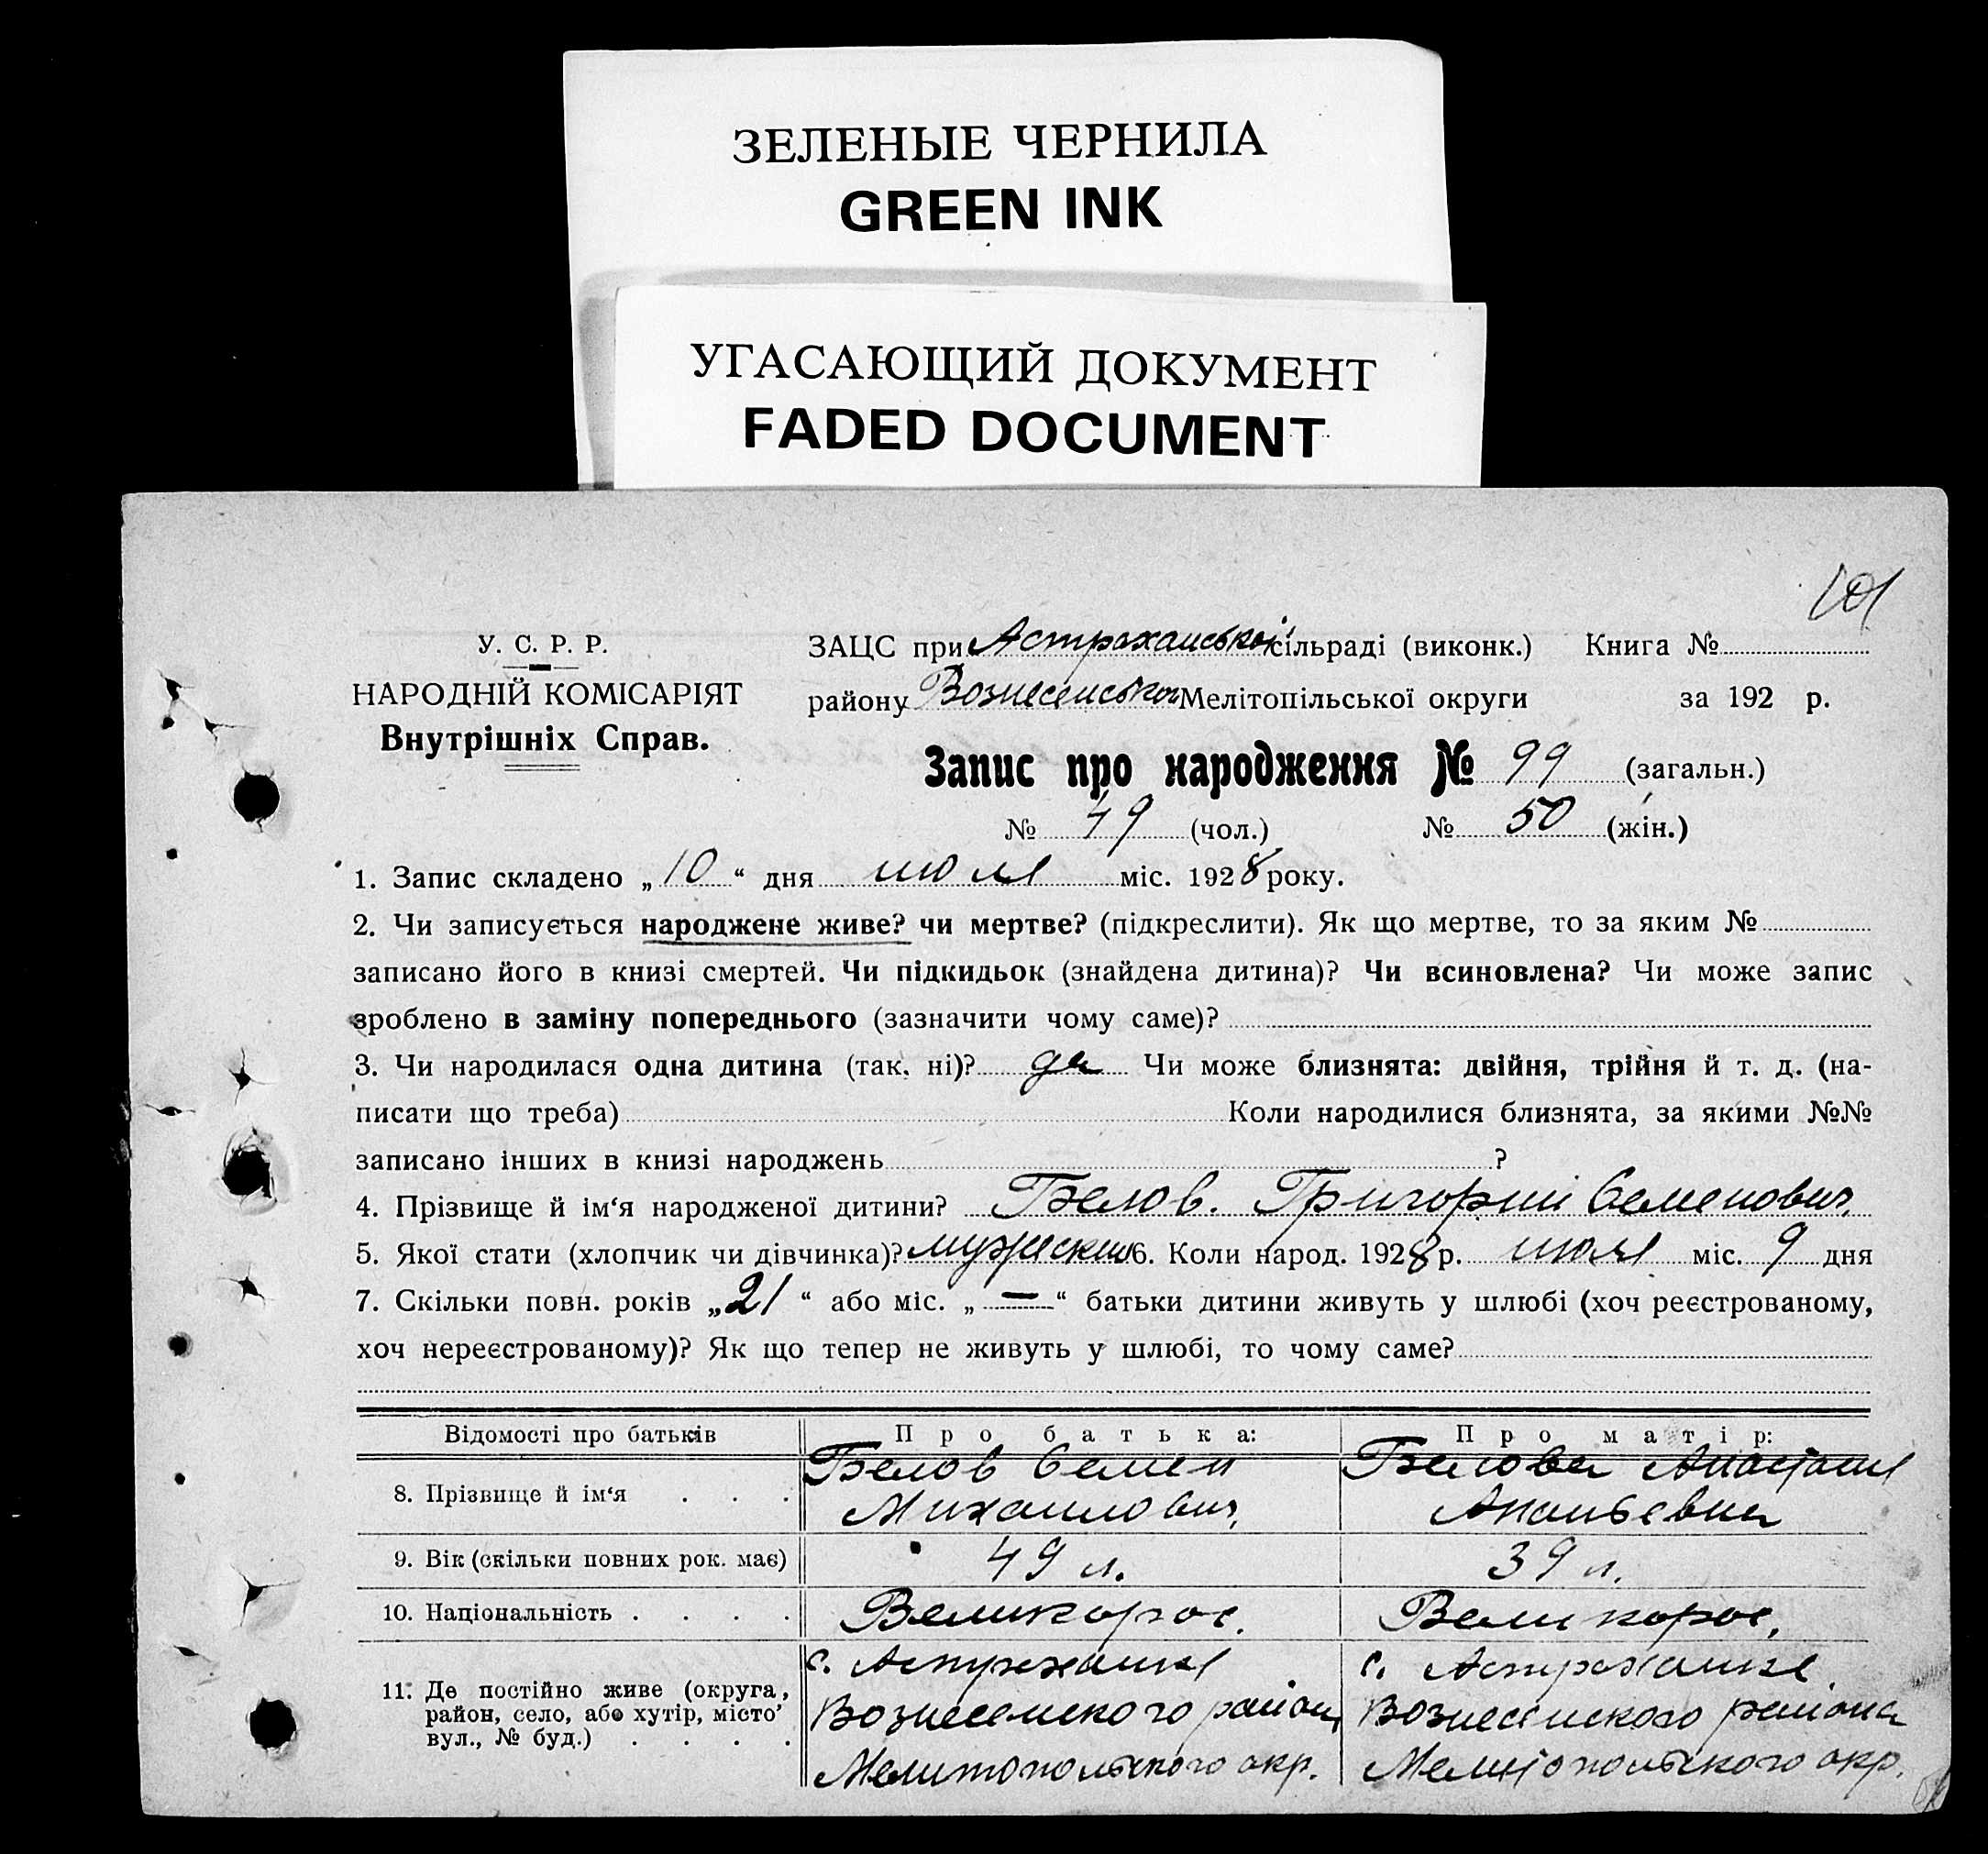 ЗЕЛЕНЫЕ ЧЕРНИЛА
GREEN INK
УГАСАЮЩИЙ ДОКУМЕНТ
FADED DOCUMENT
101
У. С. Р. Р.
НАРОДНІЙ КОМІСАРІЯТ
Внутрішніх Справ.
ЗАЦС при Астраханській сільраді (виконк.) Книга №
району Вознесенського Мелітопільської округи за 192 р.
Запис про народження № 99 (загальн.)
№ 49 (чол.) № 50 (жін.)
1. Запис складено „10“ дня июля міс. 1928 року.
2. Чи записується народжене живе? чи мертве? (підкреслити). Як що мертве, то за яким №
записано його в книзі смертей. Чи підкидьок (знайдена дитина)? Чи всиновлена? Чи може запис
зроблено в заміну попереднього (зазначити чому саме)?
3. Чи народилася одна дитина (так, ні)? да Чи може близнята: двійня, трійня й т. д. (на-
писати що треба) Коли народилися близнята, за якими №№
записано інших в книзі народжень ?
4. Прізвище й ім‘я народженої дитини? Белов. Григорий Семенович.
5. Якої стати (хлопчик чи дівчинка)? мужеский 6. Коли народ. 1928 р. июля міс. 9 дня
7. Скільки повн. років „21“ або міс. „—“ батьки дитини живуть у шлюбі (хоч реєстрованому,
хоч нереєстрованому)? Як що тепер не живуть у шлюбі, то чому саме?
Відомості про батьків Про батька: Про матір:
8. Прізвище й ім‘я . . . Белов Семен Михаилович, Белова Анастасия Ананьевна
9. Вік (скільки повних рок. має) 49 л. 39 л.
10. Національність . . . . Великорос. Великорос.
11. Де постійно живе (округа, район, село, або хутір, місто вул., № буд.) . . . . с. Астраханка Вознесенского района Мелитопольского окр. с. Астраханка Вознесенского района Мелитопольского окр.